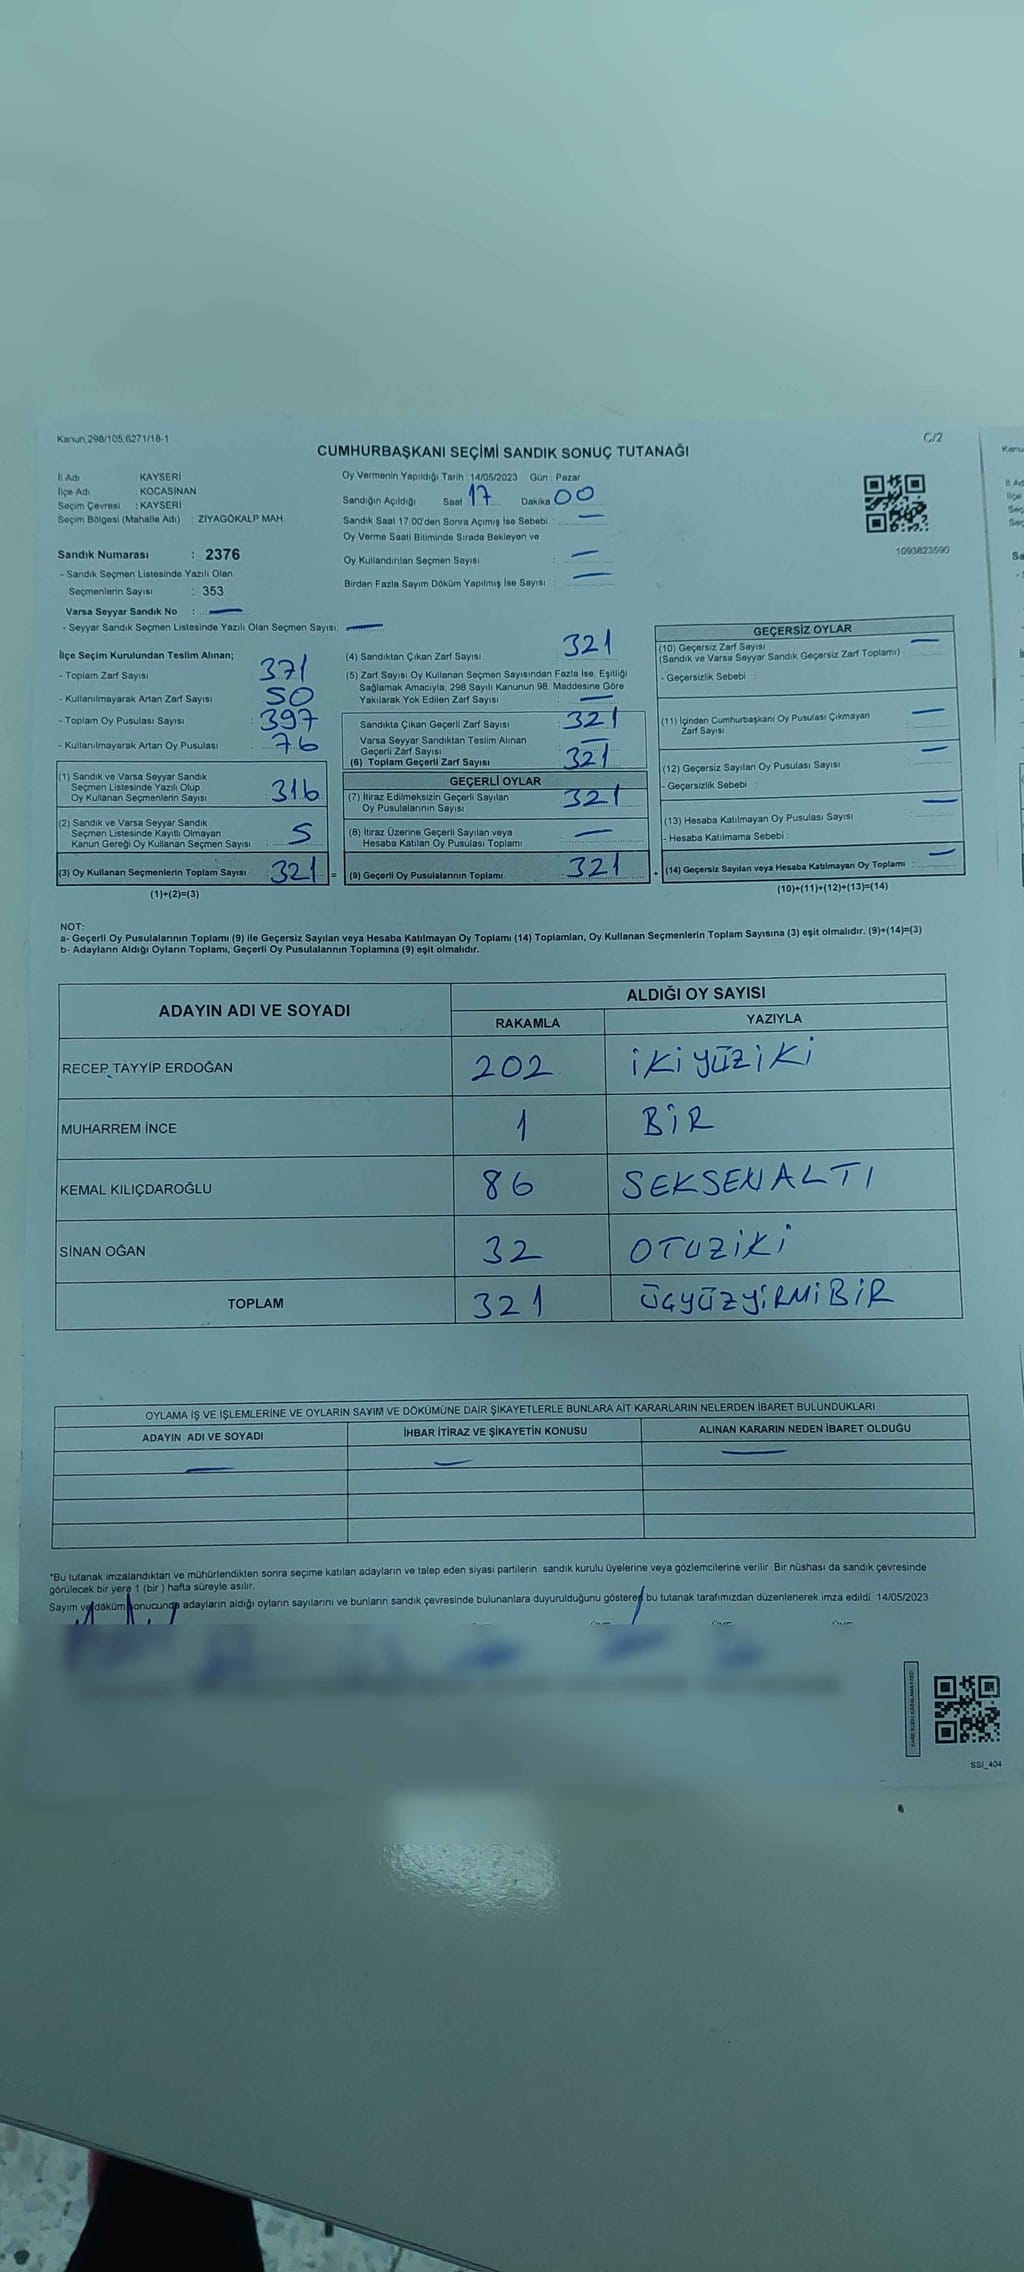 Kanun;298/105;6271/18-1
C/2
CUMHURBAŞKANI SEÇİMİ SANDIK SONUÇ TUTANAĞI
İl Adı : KAYSERİ
İlçe Adı : KOCASİNAN
Seçim Çevresi : KAYSERİ
Seçim Bölgesi (Mahalle Adı) : ZİYAGÖKALP MAH.
Sandık Numarası : 2376
- Sandık Seçmen Listesinde Yazılı Olan
Seçmenlerin Sayısı : 353
Varsa Seyyar Sandık No : —
- Seyyar Sandık Seçmen Listesinde Yazılı Olan Seçmen Sayısı: —
Oy Vermenin Yapıldığı Tarih : 14/05/2023 Gün : Pazar
Sandığın Açıldığı Saat 17 Dakika 00
Sandık Saat 17:00'den Sonra Açımış İse Sebebi : —
Oy Verme Saati Bitiminde Sırada Bekleyen ve
Oy Kullandırılan Seçmen Sayısı : —
Birden Fazla Sayım Döküm Yapılmış İse Sayısı : —
1093823590
İlçe Seçim Kurulundan Teslim Alınan;
- Toplam Zarf Sayısı : 371
- Kullanılmayarak Artan Zarf Sayısı : 50
- Toplam Oy Pusulası Sayısı : 397
- Kullanılmayarak Artan Oy Pusulası : 76
(1) Sandık ve Varsa Seyyar Sandık
Seçmen Listesinde Yazılı Olup
Oy Kullanan Seçmenlerin Sayısı : 316
(2) Sandık ve Varsa Seyyar Sandık
Seçmen Listesinde Kayıtlı Olmayan
Kanun Gereği Oy Kullanan Seçmen Sayısı : 5
(3) Oy Kullanan Seçmenlerin Toplam Sayısı : 321 =
(1)+(2)=(3)
(4) Sandıktan Çıkan Zarf Sayısı : 321
(5) Zarf Sayısı Oy Kullanan Seçmen Sayısından Fazla İse, Eşitliği
Sağlamak Amacıyla, 298 Sayılı Kanunun 98. Maddesine Göre
Yakılarak Yok Edilen Zarf Sayısı : —
Sandıkta Çıkan Geçerli Zarf Sayısı : 321
Varsa Seyyar Sandıktan Teslim Alınan
Geçerli Zarf Sayısı : —
(6) Toplam Geçerli Zarf Sayısı : 321
GEÇERLİ OYLAR
(7) İtiraz Edilmeksizin Geçerli Sayılan
Oy Pusulalarının Sayısı : 321
(8) İtiraz Üzerine Geçerli Sayılan veya
Hesaba Katılan Oy Pusulası Toplamı : —
(9) Geçerli Oy Pusulalarının Toplamı : 321 +
GEÇERSİZ OYLAR
(10) Geçersiz Zarf Sayısı : —
(Sandık ve Varsa Seyyar Sandık Geçersiz Zarf Toplamı)
- Geçersizlik Sebebi :
(11) İçinden Cumhurbaşkanı Oy Pusulası Çıkmayan
Zarf Sayısı : —
(12) Geçersiz Sayılan Oy Pusulası Sayısı : —
- Geçersizlik Sebebi :
(13) Hesaba Katılmayan Oy Pusulası Sayısı : —
- Hesaba Katılmama Sebebi :
(14) Geçersiz Sayılan veya Hesaba Katılmayan Oy Toplamı : —
(10)+(11)+(12)+(13)=(14)
NOT:
a- Geçerli Oy Pusulalarının Toplamı (9) ile Geçersiz Sayılan veya Hesaba Katılmayan Oy Toplamı (14) Toplamları, Oy Kullanan Seçmenlerin Toplam Sayısına (3) eşit olmalıdır. (9)+(14)=(3)
b- Adayların Aldığı Oyların Toplamı, Geçerli Oy Pusulalarının Toplamına (9) eşit olmalıdır.
ADAYIN ADI VE SOYADI
ALDIĞI OY SAYISI
RAKAMLA YAZIYLA
RECEP TAYYİP ERDOĞAN 202 İKİ YÜZ İKİ
MUHARREM İNCE 1 BİR
KEMAL KILIÇDAROĞLU 86 SEKSENALTI
SİNAN OĞAN 32 OTUZİKİ
TOPLAM 321 ÜÇYÜZYİRMİBİR
OYLAMA İŞ VE İŞLEMLERİNE VE OYLARIN SAYIM VE DÖKÜMÜNE DAİR ŞİKAYETLERLE BUNLARA AİT KARARLARIN NELERDEN İBARET BULUNDUKLARI
ADAYIN ADI VE SOYADI İHBAR İTİRAZ VE ŞİKAYETİN KONUSU ALINAN KARARIN NEDEN İBARET OLDUĞU
— — —
*Bu tutanak imzalandıktan ve mühürlendikten sonra seçime katılan adayların ve talep eden siyasi partilerin sandık kurulu üyelerine veya gözlemcilerine verilir. Bir nüshası da sandık çevresinde
görülecek bir yere 1 (bir) hafta süreyle asılır.
Sayım ve döküm sonucunda adayların aldığı oyların sayılarını ve bunların sandık çevresinde bulunanlara duyurulduğunu gösteren bu tutanak tarafımızdan düzenlenerek imza edildi. 14/05/2023
SSI_404